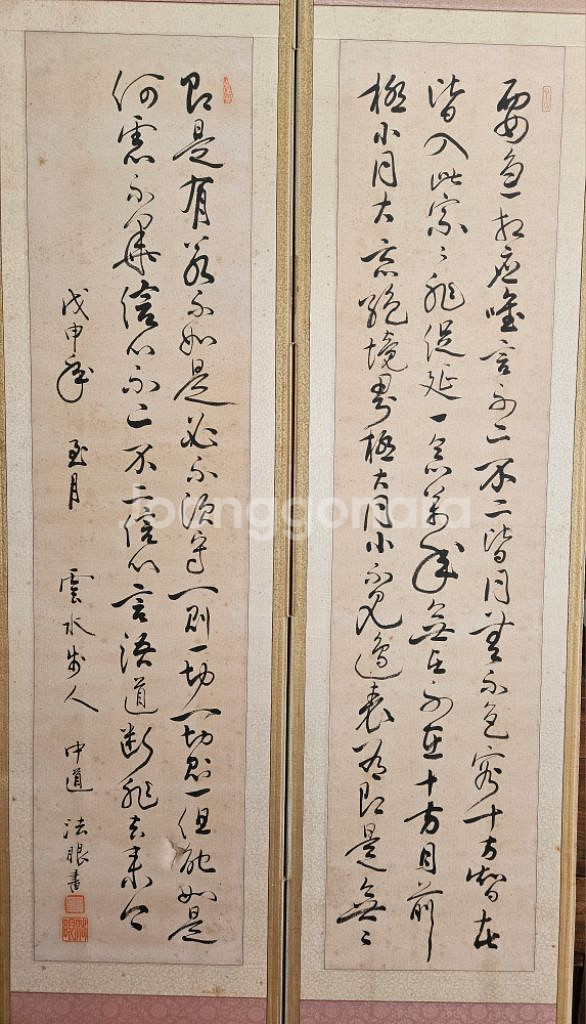 要急相應唯言不二不二皆同無不包容十方智者
皆入此宗〻非促延一念萬年無在不在十方目前
極小同大忘絶境界極大同小不見邊表有即是無〻
即是有若不如是必不須守一則一切一切則一但能如是
何慮不畢信心不二不二信心言語道斷非去來今
戊申年 至月 雲水步人 中道 法眼書
joonggonara